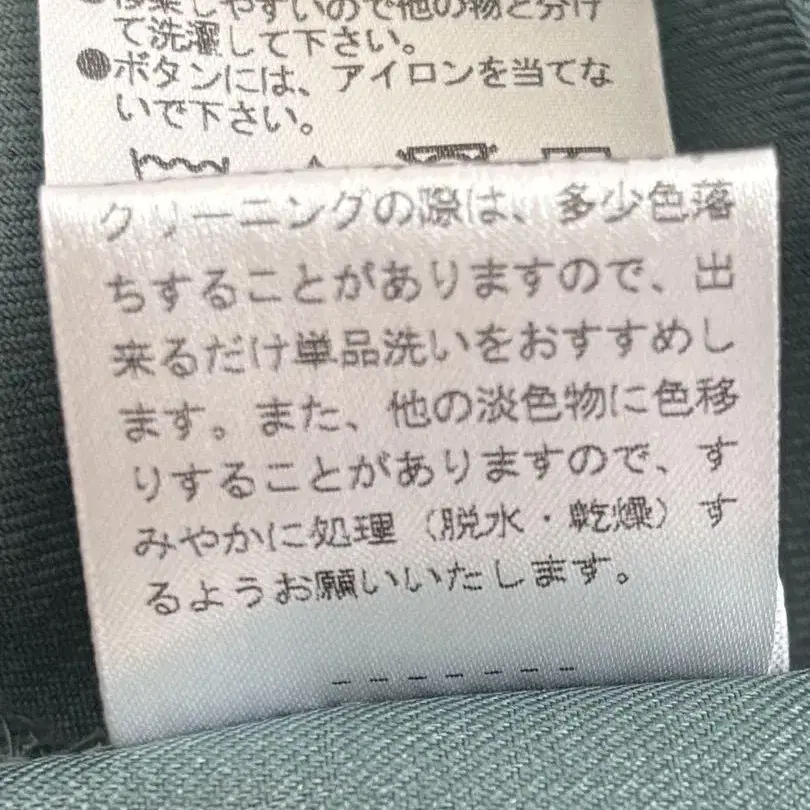 しやすいので他の物と分け
て洗濯して下さい。
●ボタンには、アイロンを当てな
いで下さい。
クリーニングの際は、多少色落
ちすることがありますので、出
来るだけ単品洗いをおすすめし
ます。また、他の淡色物に色移
りすることがありますので、す
みやかに処理（脱水・乾燥）す
るようお願いいたします。